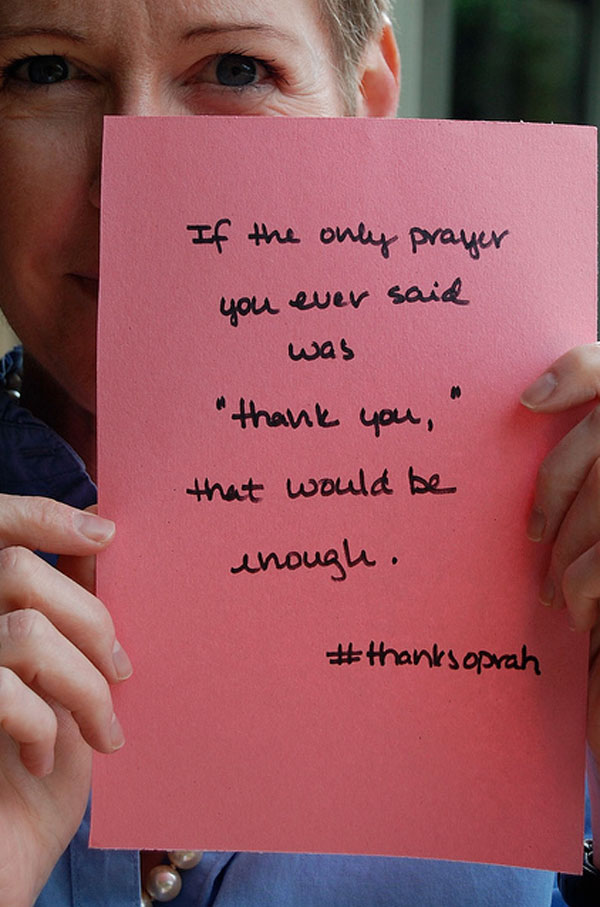 If the only prayer
you ever said
was
"thank you,"
that would be
enough.
#thanksoprah